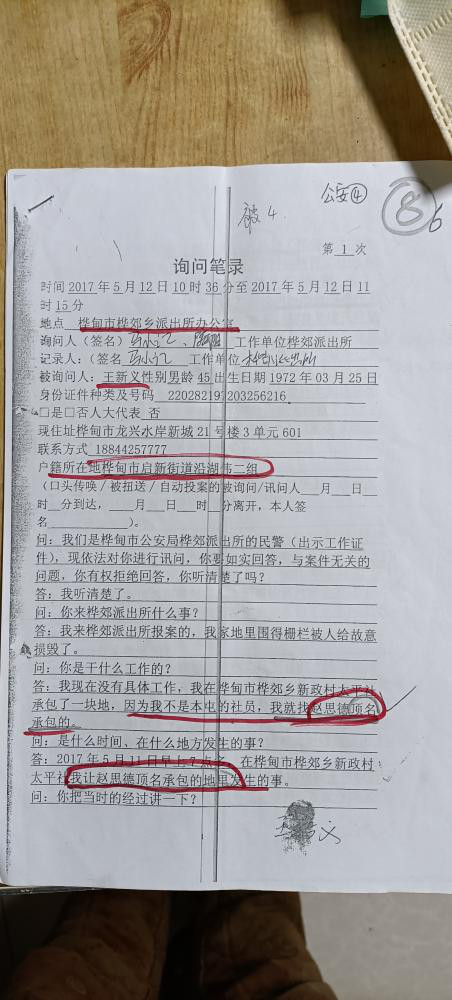 公安④
⑧6
被4
第 1 次
询问笔录
时间 2017 年 5 月 12 日 10 时 36 分至 2017 年 5 月 12 日 11
时 15 分
地点 桦甸市桦郊乡派出所办公室
询问人（签名） 工作单位桦郊派出所
记录人：（签名 工作单位
被询问人：王新义性别男龄 45 出生日期 1972 年 03 月 25 日
身份证件种类及号码 220282197203256216
□是□否人大代表 否
现住址桦甸市龙兴水岸新城 21 号楼 3 单元 601
联系方式 18844257777
户籍所在地桦甸市启新街道沿湖 二组
（口头传唤／被扭送／自动投案的被询问/讯问人 月 日
时 分到达， 月 日 时 分离开，本人签
名 ）。
问：我们是桦甸市公安局桦郊派出所的民警（出示工作证
件），现依法对你进行讯问，你要如实回答，与案件无关的
问题，你有权拒绝回答，你听清楚了吗？
答：我听清楚了。
问：你来桦郊派出所什么事？
答：我来桦郊派出所报案的，我家地里围得栅栏被人给故意
损毁了。
问：你是干什么工作的？
答：我现在没有具体工作，我在桦甸市桦郊乡新政村太平社
承包了一块地，因为我不是本屯的社员，我就找赵思德顶名
承包的。
问：是什么时间、在什么地方发生的事？
答：2017 年 5 月 11 日早上 7 点多，在桦甸市桦郊乡新政村
太平社我让赵思德顶名承包的地里发生的事。
问：你把当时的经过讲一下？